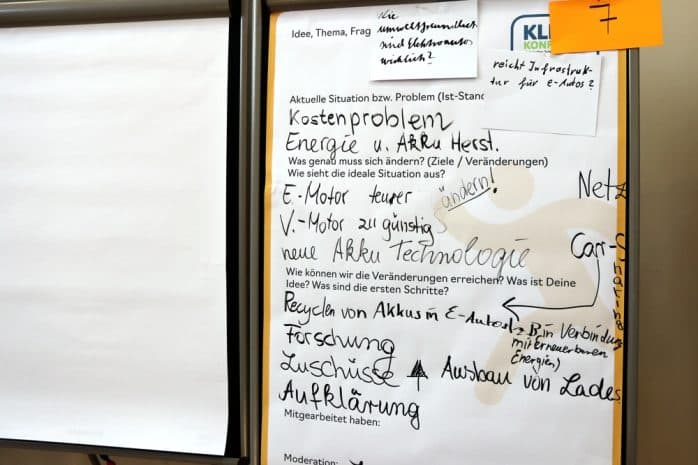 Idee, Thema, Frag
Wie
umweltfreundlich
sind Elektroautos
wirklich?
KLI
KONF
7
reicht Infrastruk-
tur für E-Autos?
Aktuelle Situation bzw. Problem (Ist-Stand
Kostenproblem
Energie u. Akku Herst.
Was genau muss sich ändern? (Ziele / Veränderungen)
Wie sieht die ideale Situation aus?
E.-Motor teurer
ändern!
Netz
V.-Motor zu günstig
neue Akku Technologie
Carr-Sharing
Wie können wir die Veränderungen erreichen? Was ist Deine
Idee? Was sind die ersten Schritte?
Recyclen von Akkus in E-Autos (z.B. in Verbindung
mit erneuerbaren
Energien)
Forschung
Zuschüsse
Ausbau von Lades
Aufklärung
Mitgearbeitet haben:
Moderation: